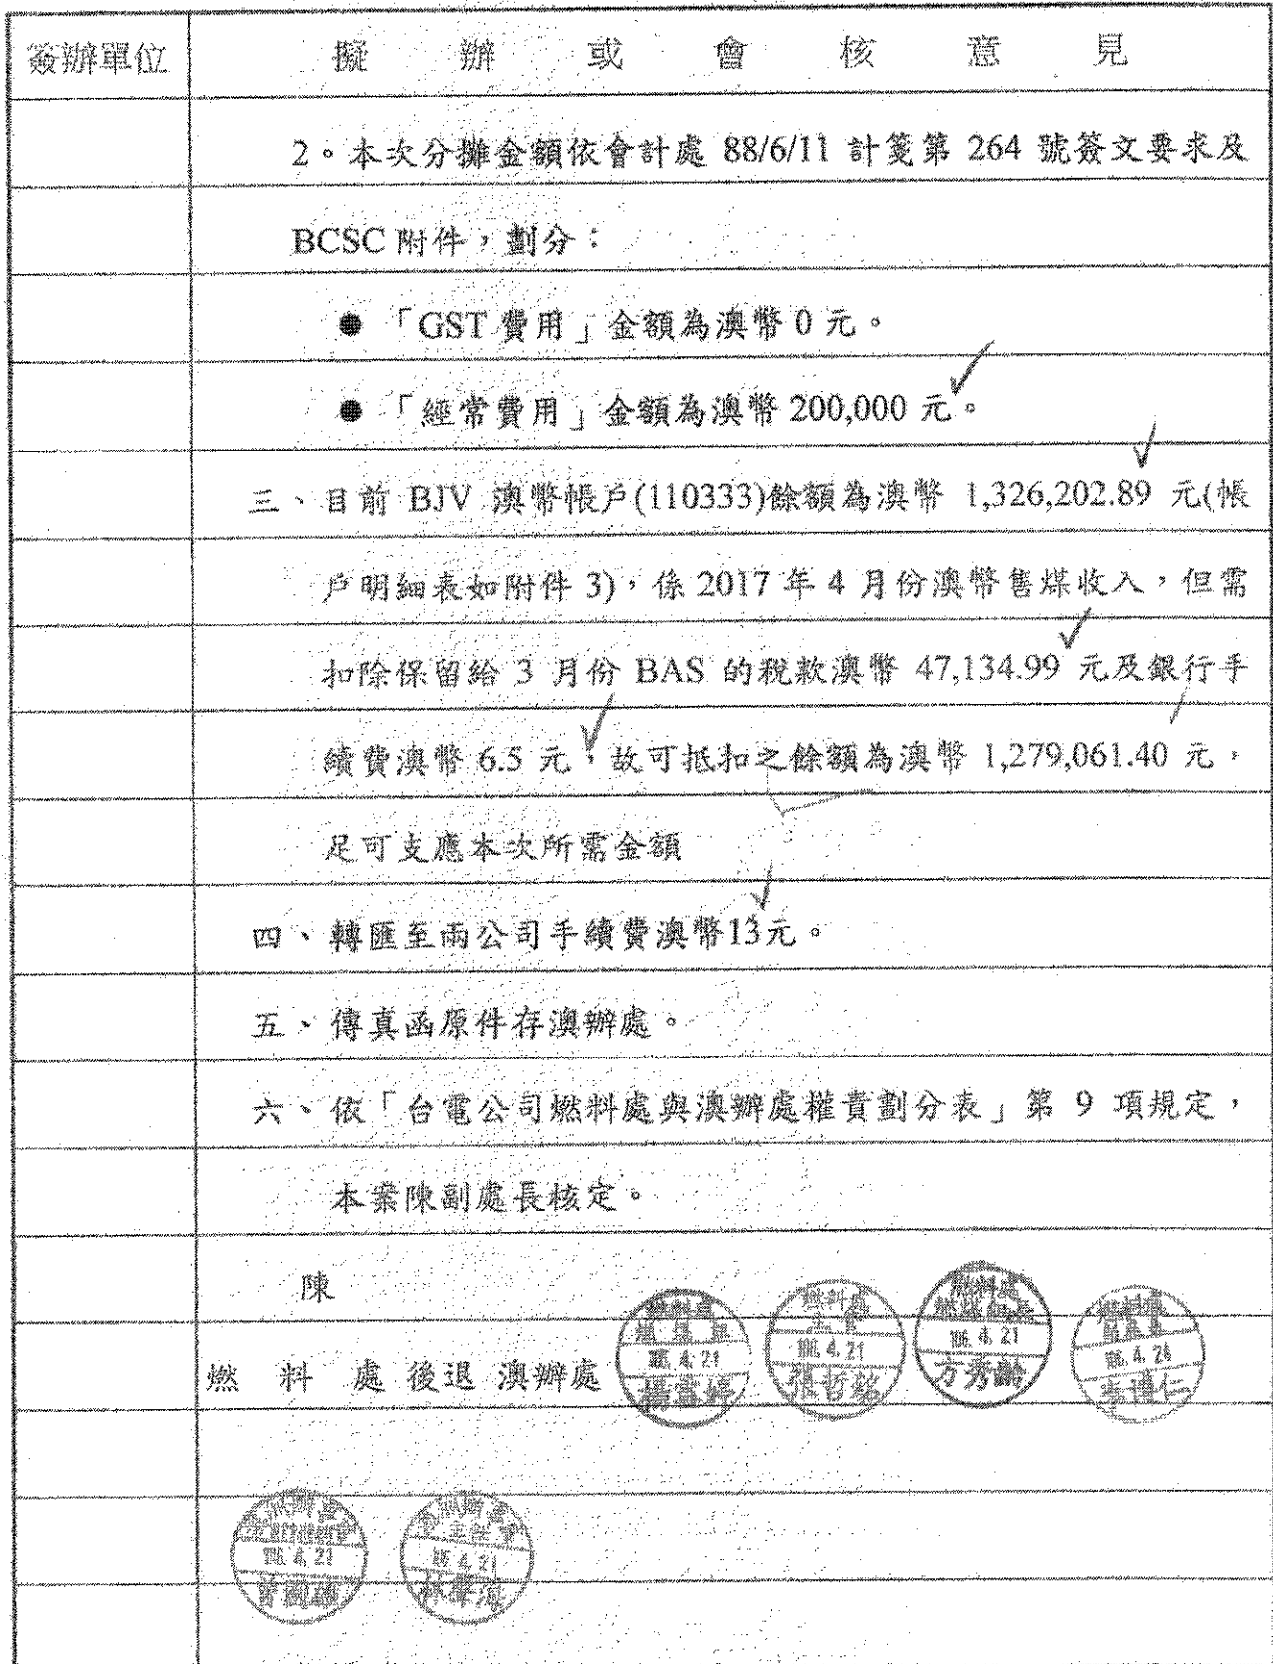 簽辦單位 擬辦或會核意見
2。本次分攤金額依會計處 88/6/11 計箋第 264 號簽文要求及
BCSC 附件，劃分：
● 「GST 費用」金額為澳幣 0 元。
● 「經常費用」金額為澳幣 200,000 元。
三、目前 BJV 澳幣帳戶(110333)餘額為澳幣 1,326,202.89 元(帳
戶明細表如附件 3)，係 2017 年 4 月份澳幣售煤收入，但需
扣除保留給 3 月份 BAS 的稅款澳幣 47,134.99 元及銀行手
續費澳幣 6.5 元，故可抵扣之餘額為澳幣 1,279,061.40 元，
足可支應本次所需金額
四、轉匯至兩公司手續費澳幣13元。
五、傳真函原件存澳辦處。
六、依「台電公司燃料處與澳辦處權責劃分表」第 9 項規定，
本案陳副處長核定。
陳
燃 料 處 後退 澳辦處
燃料處
106.4.21
張哲銘
燃料處
106.4.21
方秀齡
106.4.21
106.4.21